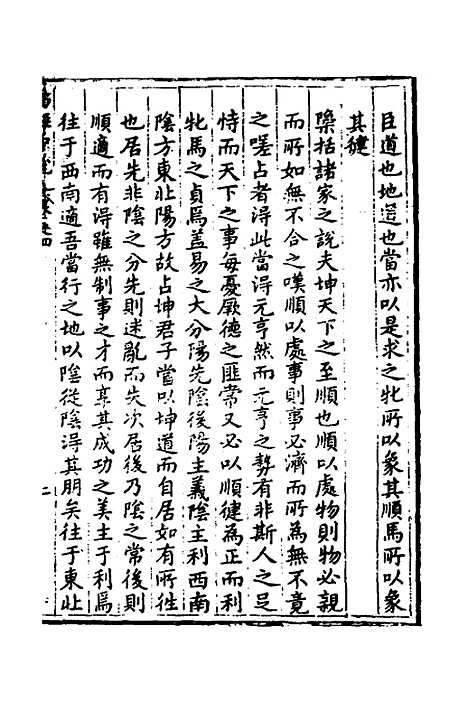 臣道也地道也當亦以是求之牝所以象其順馬所以象
其健
檃括諸家之說夫坤天下之至順也順以處物則物必親
而所如無不合之嘆順以處事則事必濟而所為無不竟
之嗟占者得此當得元亨然而元亨之勢有非斯人之足
恃而天下之事每憂厥德之匪常又必以順健為正而利
牝馬之貞焉盖易之大分陽先陰後陽主義陰主利西南
陰方東北陽方故占坤君子當以坤道而自居如有所往
也居先非陰之分先則迷亂而失次居後乃陰之常後則
順適而有得雖無制事之才而享其成功之美主于利焉
往于西南適吾當行之地以陰從陰得其朋矣往于東北
二